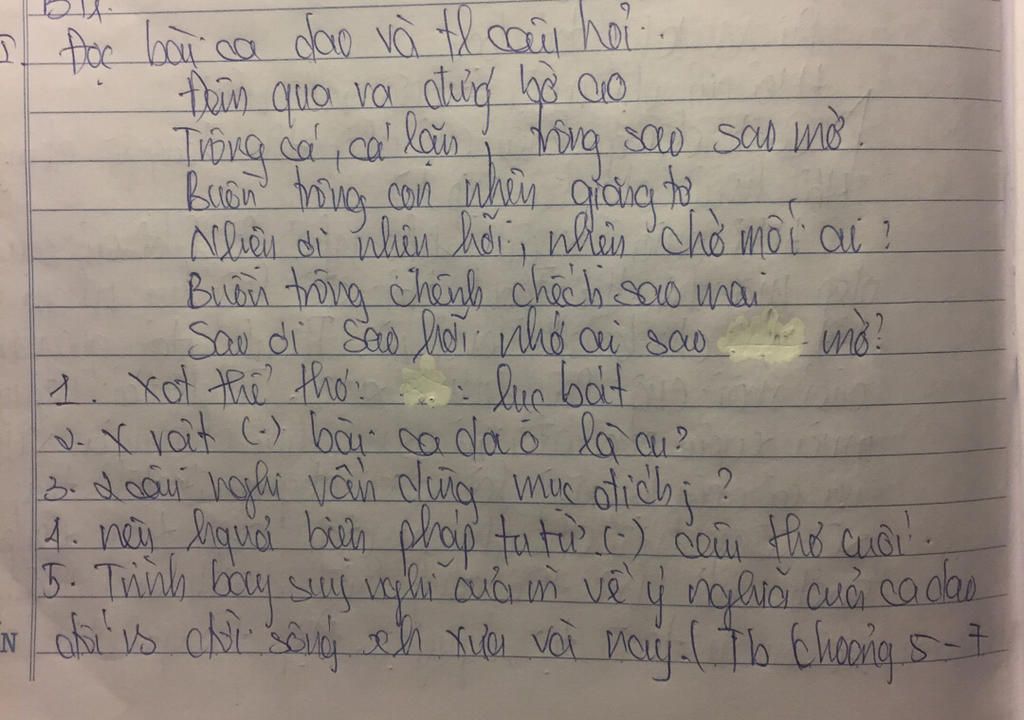 I. Đọc bài ca dao và tl câu hỏi.
Đêm qua ra đứng bờ ao
Trông cá, cá lặn, trông sao sao mờ.
Buồn trông con nhện giăng tơ
Nhện ơi nhện hỡi, nhện chờ mối ai?
Buồn trông chênh chếch sao mai
Sao ơi sao hỡi nhớ ai sao mờ?
1. Xđ thể thơ: : lục bát
2. X vật (.) bài ca dao là ai?
3. 2 câu nghi vấn dùng mục đích j?
4. nêu hquả biện pháp tu từ (.) câu thơ cuối.
5. Trình bày suy nghĩ của m về ý nghĩa của ca dao
N đối vs đời sống xh xưa và nay. (Tb khoảng 5-7